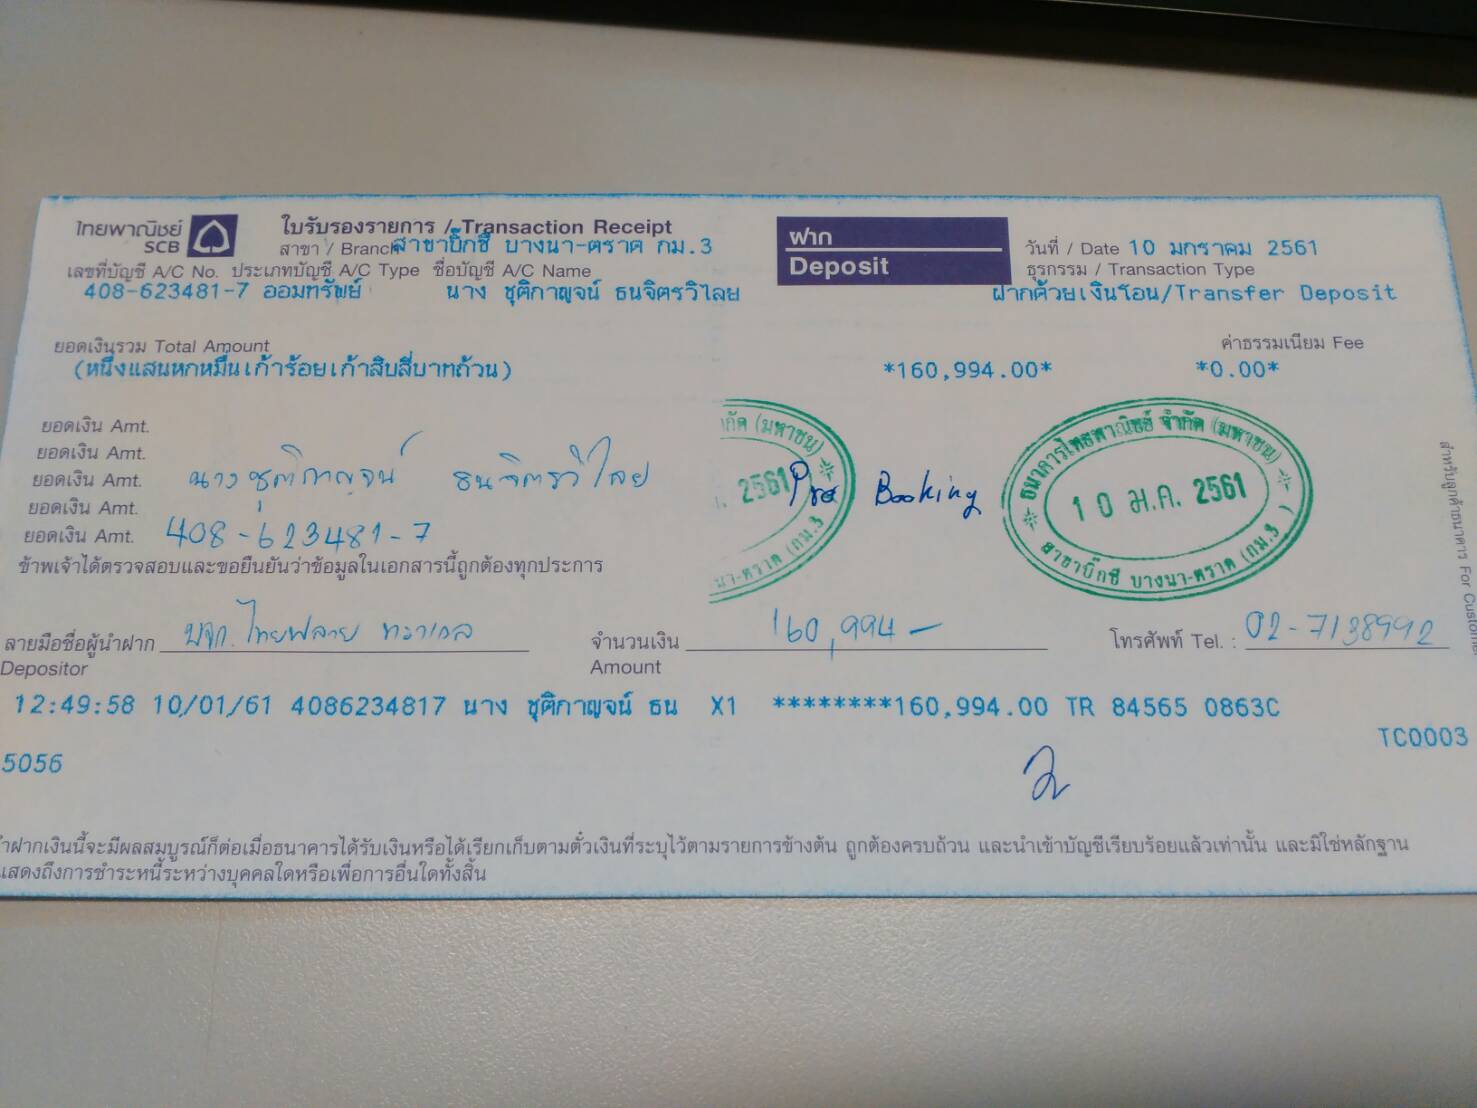 ไทยพาณิชย์
SCB
ใบรับรองรายการ / Transaction Receipt
สาขา / Branch สาขาบิ๊กซี บางนา-ตราด กม.3
ฝาก
Deposit
วันที่ / Date 10 มกราคม 2561
ธุรกรรม / Transaction Type
ฝากด้วยเงินโอน/Transfer Deposit
เลขที่บัญชี A/C No. ประเภทบัญชี A/C Type ชื่อบัญชี A/C Name
408-623481-7 ออมทรัพย์ นาง ชุติกาญจน์ ธนจิตรวิไลย
ยอดเงินรวม Total Amount ค่าธรรมเนียม Fee
(หนึ่งแสนหกหมื่นเก้าร้อยเก้าสิบสี่บาทถ้วน) *160,994.00* *0.00*
ยอดเงิน Amt.
ยอดเงิน Amt.
ยอดเงิน Amt. นางชุติกาญจน์ ธนจิตรวิไลย
ยอดเงิน Amt.
ยอดเงิน Amt. 408-623481-7
ำกัด (มหาชน)
. 2561
บางนา-ตราด (กม.3
Pre Booking
ธนาคารไทยพาณิชย์ จำกัด (มหาชน)
10 ม.ค. 2561
สาขาบิ๊กซี บางนา-ตราด (กม.3)
สำหรับลูกค้าธนาคาร For Customer
ข้าพเจ้าได้ตรวจสอบและขอยืนยันว่าข้อมูลในเอกสารนี้ถูกต้องทุกประการ
ลายมือชื่อผู้นำฝาก บจก. ไทยฟลาย ทราเวล จำนวนเงิน 160,994- โทรศัพท์ Tel. : 02-7138992
Depositor Amount
12:49:58 10/01/61 4086234817 นาง ชุติกาญจน์ ธน X1 ********160,994.00 TR 84565 0863C
TC0003
5056
ฝากเงินนี้จะมีผลสมบูรณ์ก็ต่อเมื่อธนาคารได้รับเงินหรือได้เรียกเก็บตามตั๋วเงินที่ระบุไว้ตามรายการข้างต้น ถูกต้องครบถ้วน และนำเข้าบัญชีเรียบร้อยแล้วเท่านั้น และมิใช่หลักฐาน
แสดงถึงการชำระหนี้ระหว่างบุคคลใดหรือเพื่อการอื่นใดทั้งสิ้น